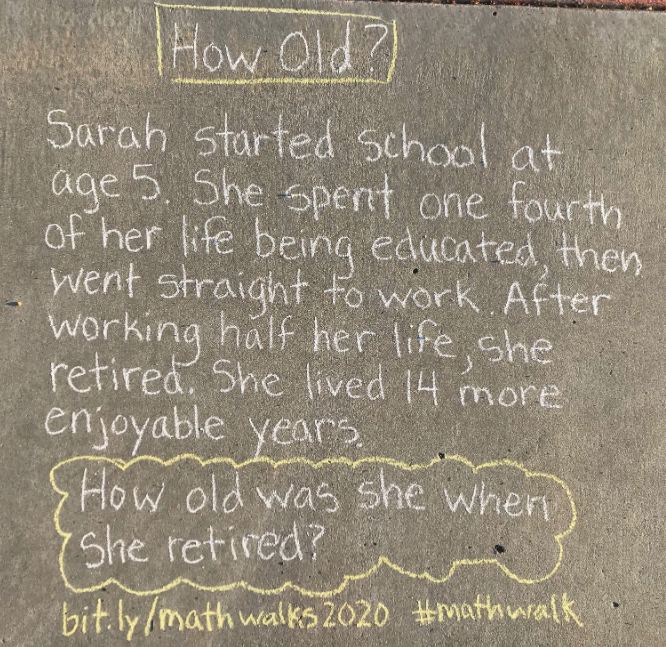 How Old?
Sarah started school at
age 5. She spent one fourth
of her life being educated, then
went straight to work. After
working half her life, she
retired. She lived 14 more
enjoyable years.
How old was she when
she retired?
bit.ly/mathwalks2020 #mathwalk